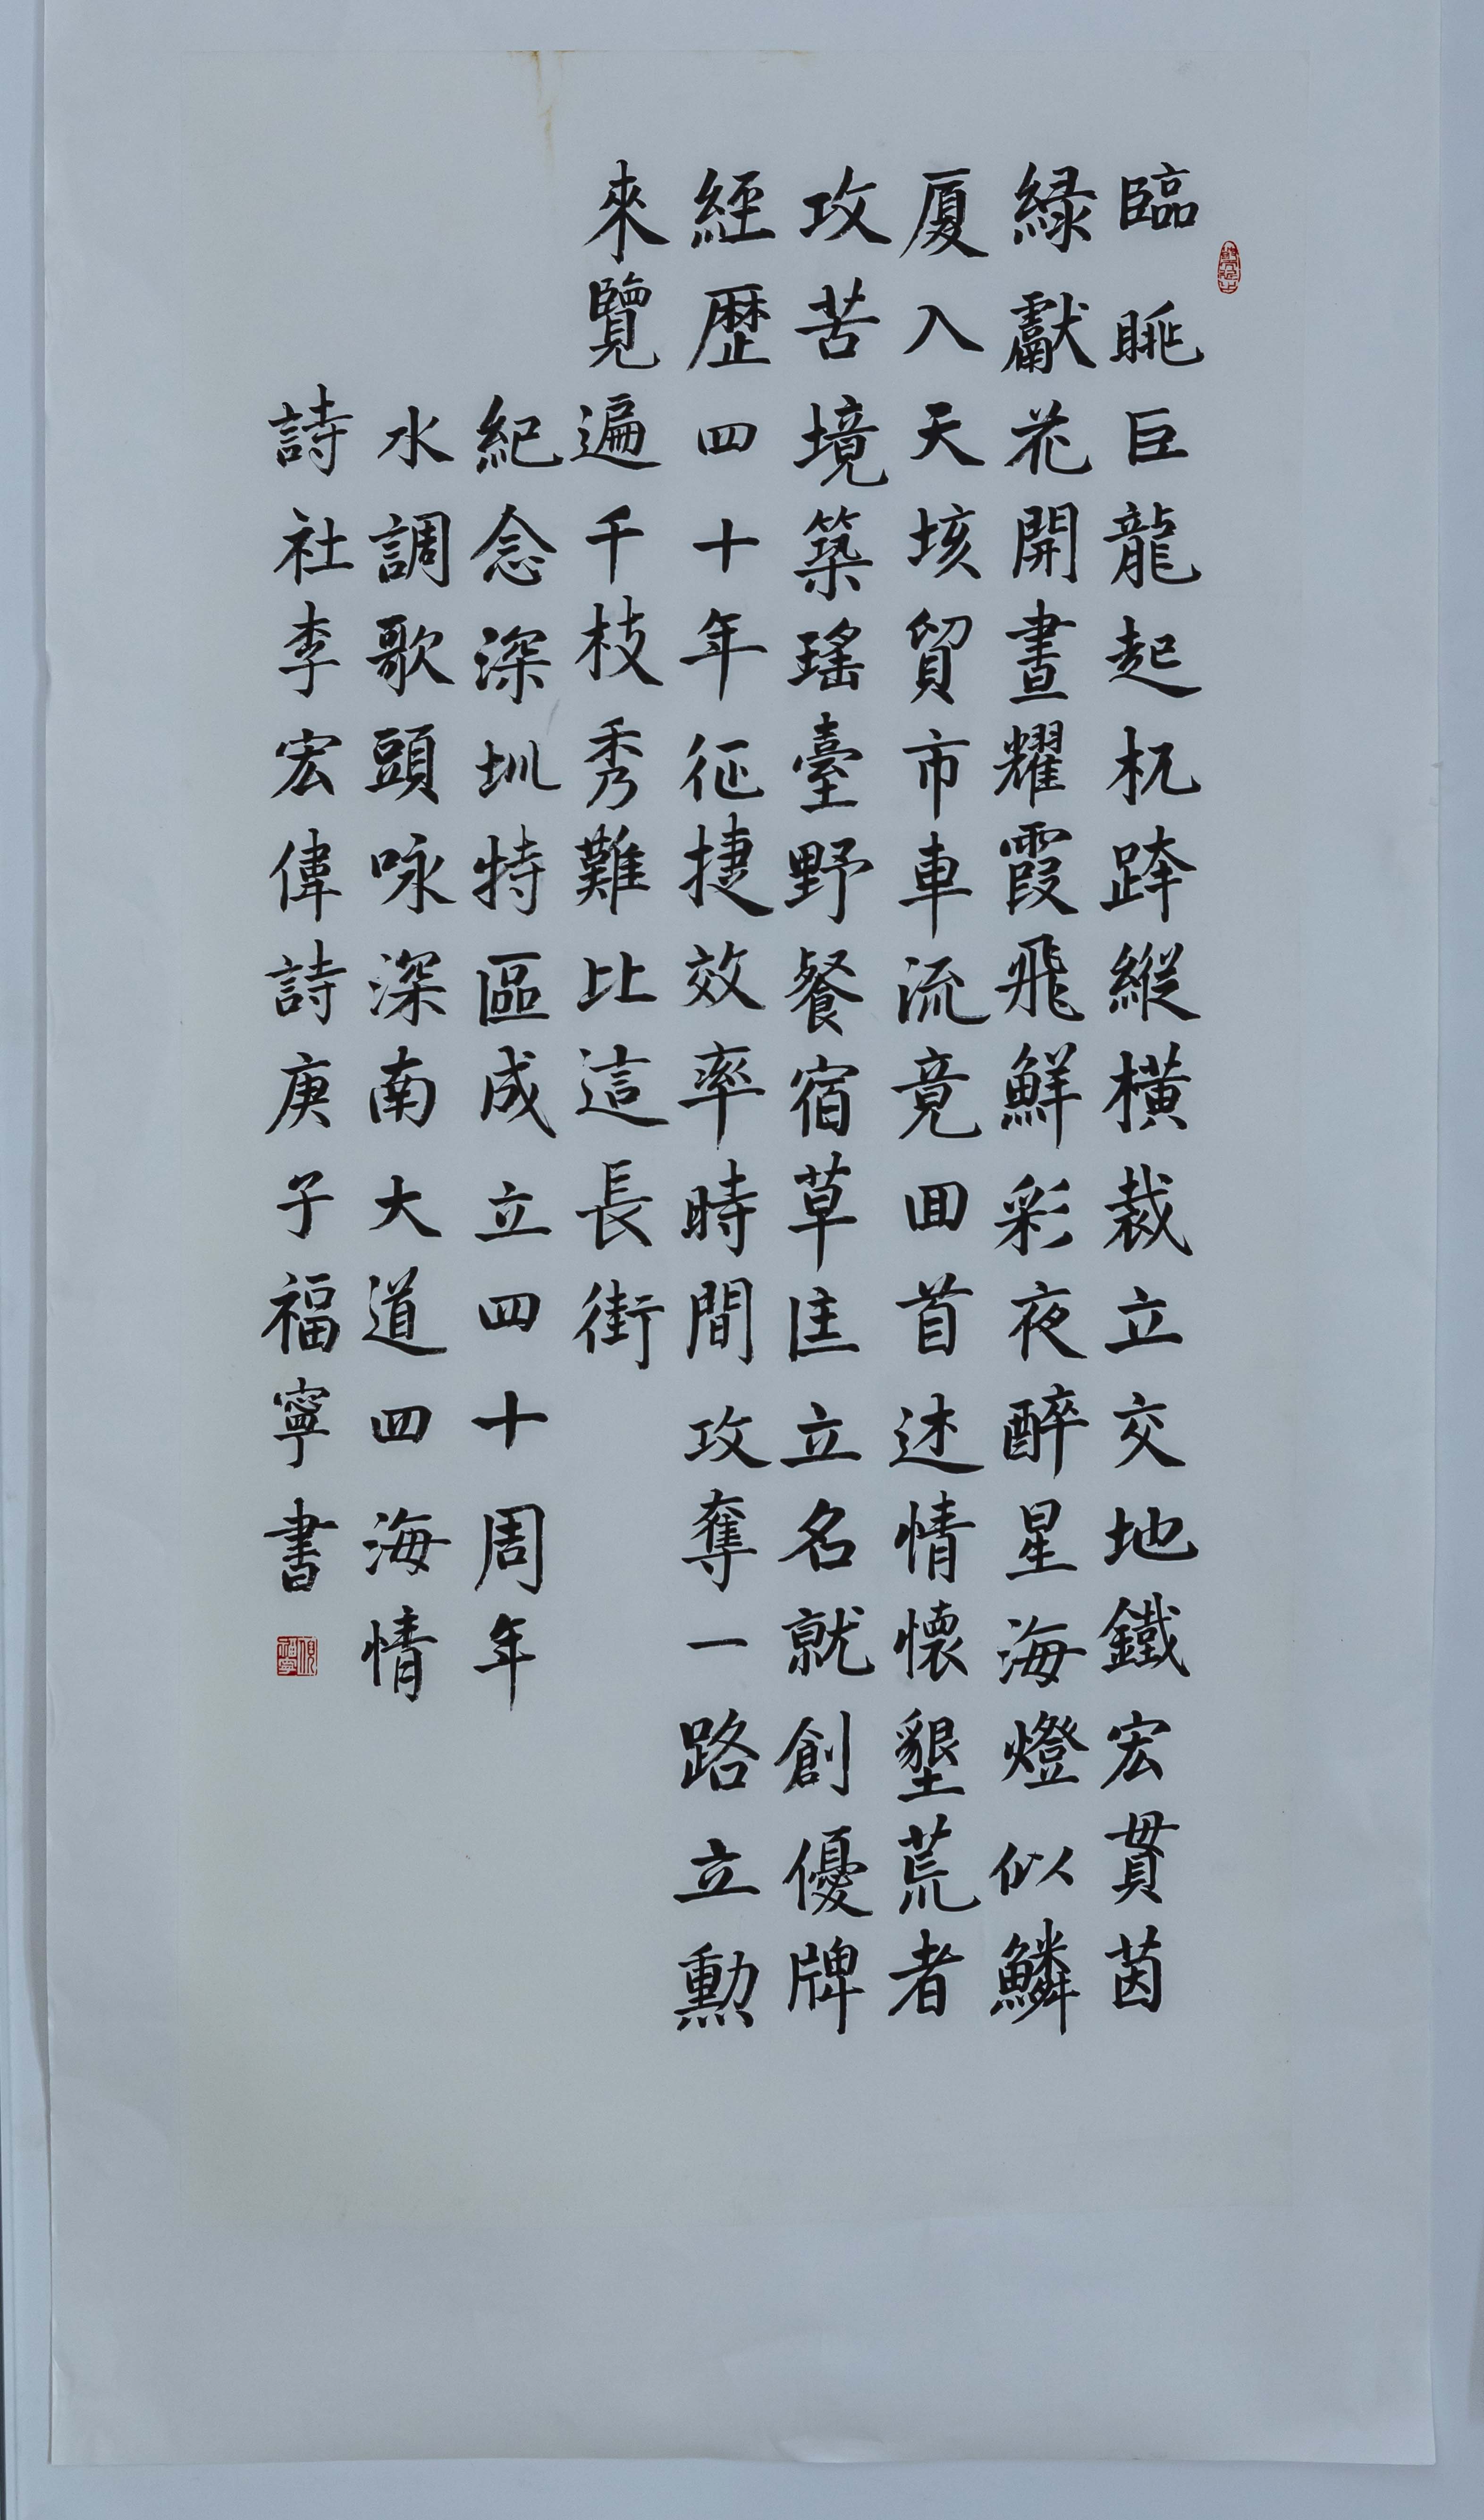 臨眺巨龍起杌跨縱橫裁立交地鐵宏貫茵
緑獻花開晝耀霞飛鮮彩夜醉星海燈似鱗
厦入天垓貿市車流竟回首述情懷墾荒者
攻苦境築瑤臺野餐宿草匡立名就創優牌
經歷四十年征捷效率時間攻奪一路立勳
來覽遍千枝秀難比這長街
紀念深圳特區成立四十周年
水調歌頭咏深南大道四海情
詩社李宏偉詩庚子福寧書